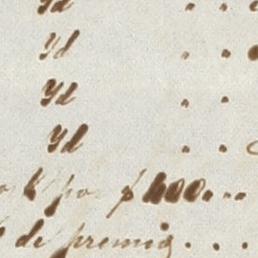 Yd . .
Yd . .
Yd . .
Yd . .
p 600 . . .
de premio . . .